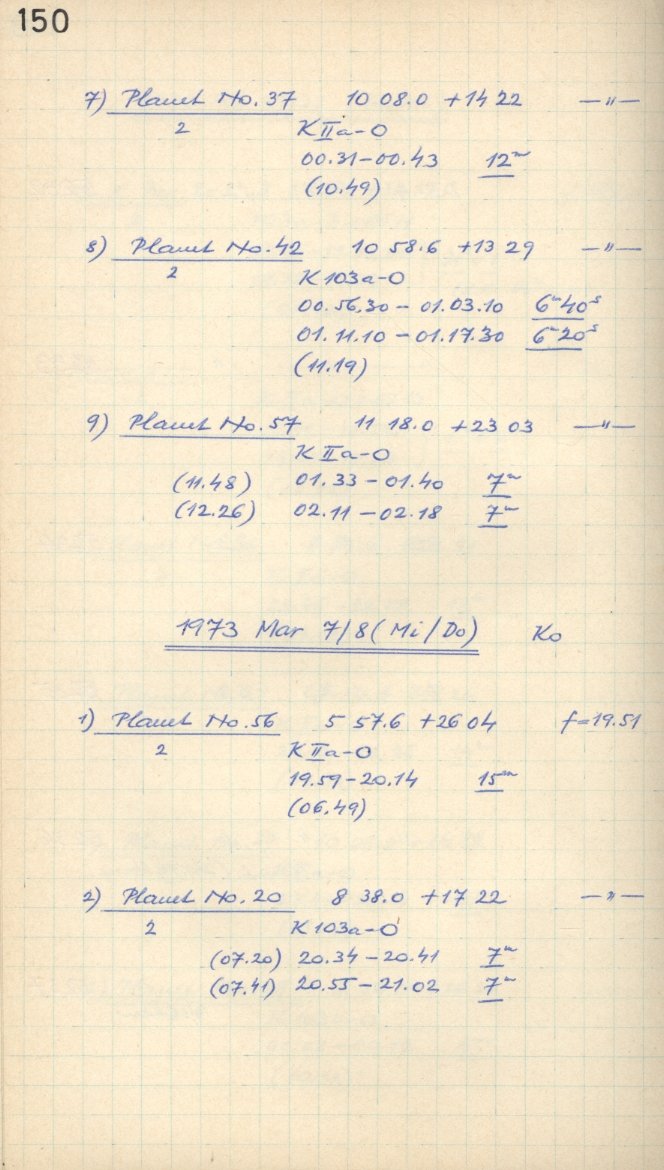 150
7) Planet No. 37 10 08.0 +14 22 —"—
2 K IIa-O
00.31-00.43 12m
(10.49)
8) Planet No. 42 10 58.6 +13 29 —"—
2 K 103a-O
00.56.30 - 01.03.10 6m40s
01.11.10 - 01.17.30 6m20s
(11.19)
9) Planet No. 57 11 18.0 +23 03 —"—
K IIa-O
(11.48) 01.33-01.40 7m
(12.26) 02.11-02.18 7m
1973 Mar 7/8 (Mi/Do) Ko
1) Planet No. 56 5 57.6 +26 04 f=19.51
2 K IIa-O
19.59-20.14 15m
(06.49)
2) Planet No. 20 8 38.0 +17 22 —"—
2 K 103a-O
(07.20) 20.34-20.41 7m
(07.41) 20.55-21.02 7m